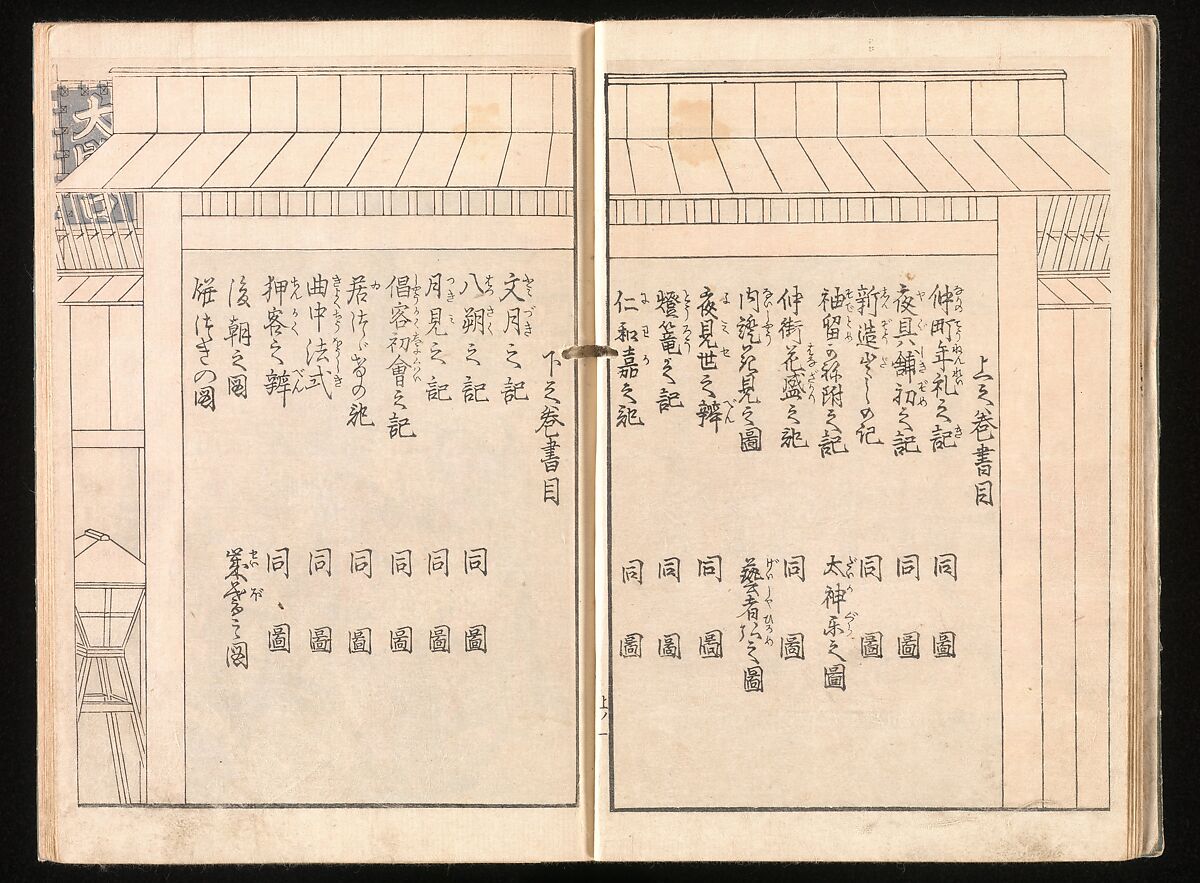 上之巻書目
仲町年礼之記 同 圖
夜具舗初之記 同 圖
新造出しの記 同 圖
袖留の祢附之記 太神楽之圖
仲街花盛之記 同 圖
内證花見之圖 藝者弘之圖
夜見世之辯 同 圖
燈籠之記 同 圖
仁和嘉之記 同 圖
上ノ一
下之巻書目
文月之記
八朔之記 同 圖
月見之記 同 圖
倡客初會之記 同 圖
居つゞけの記 同 圖
曲中法式 同 圖
押客之辯 同 圖
後朝之圖 歳暮之圖
餅つきの圖
大